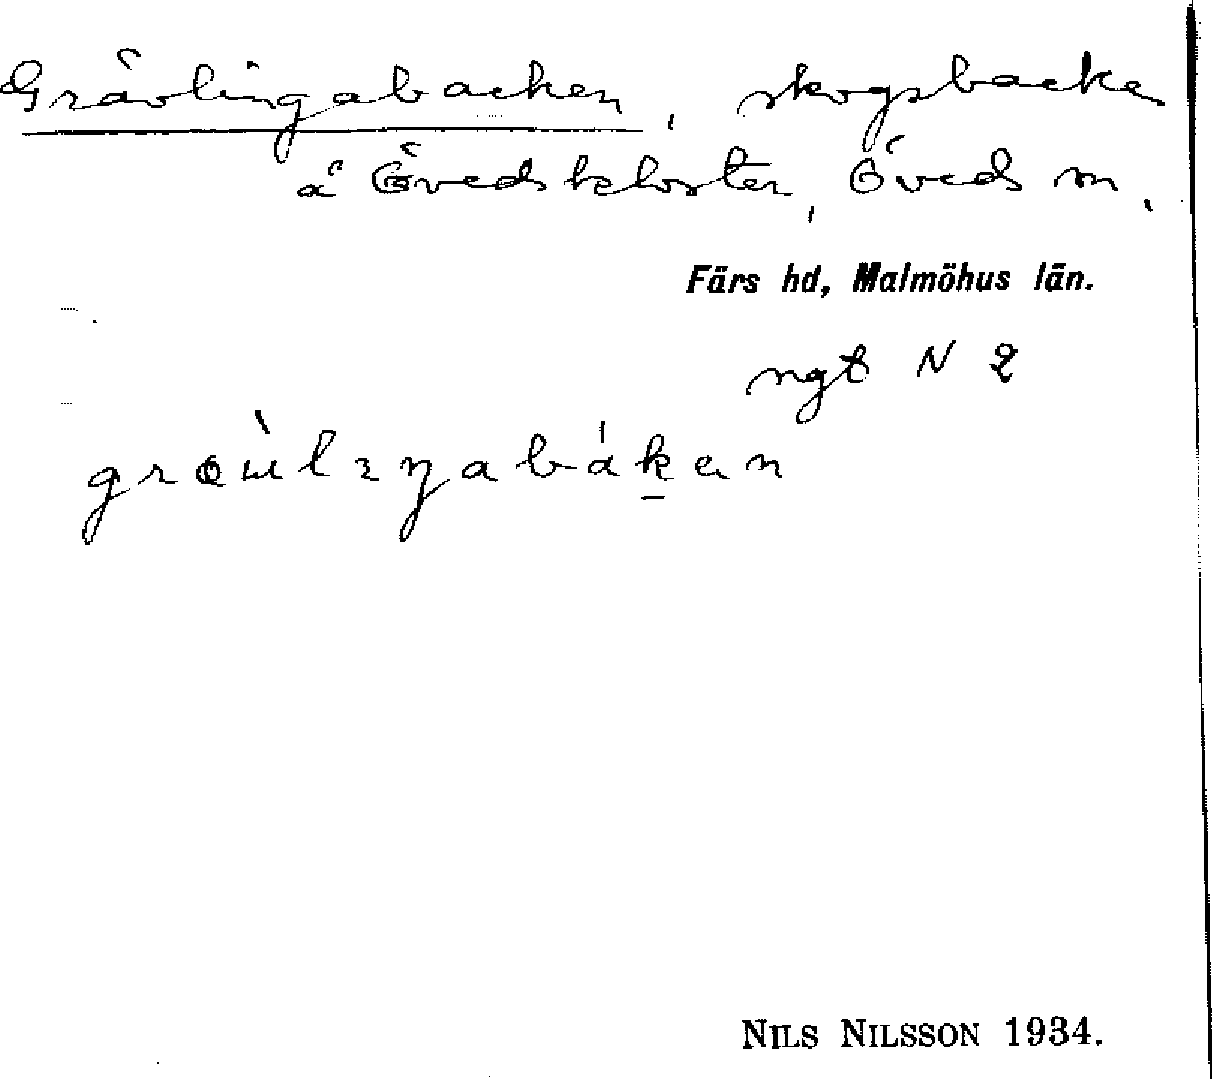 Grävlingabacken, skogsbacke
å Övedskloster, Öveds sn.
Färs hd, Malmöhus län.
ngt N 2
NILS NILSSON 1934.